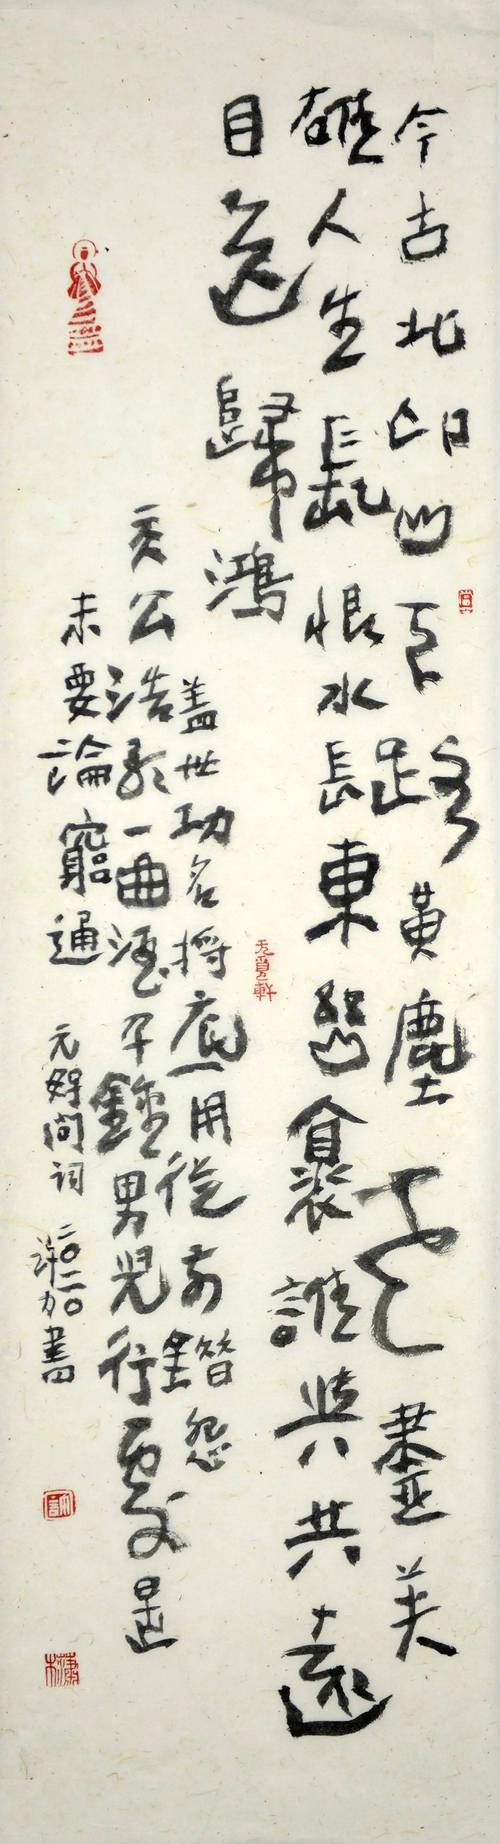 今古北邙山下路黃塵老盡英
雄人生長恨水長東幽懷誰與共遠
目送歸鴻
盖世功名將底用從前錯怨
天公浩歌一曲酒千鍾男兒行處是
未要論窮通 元好問詞 二〇二〇 書